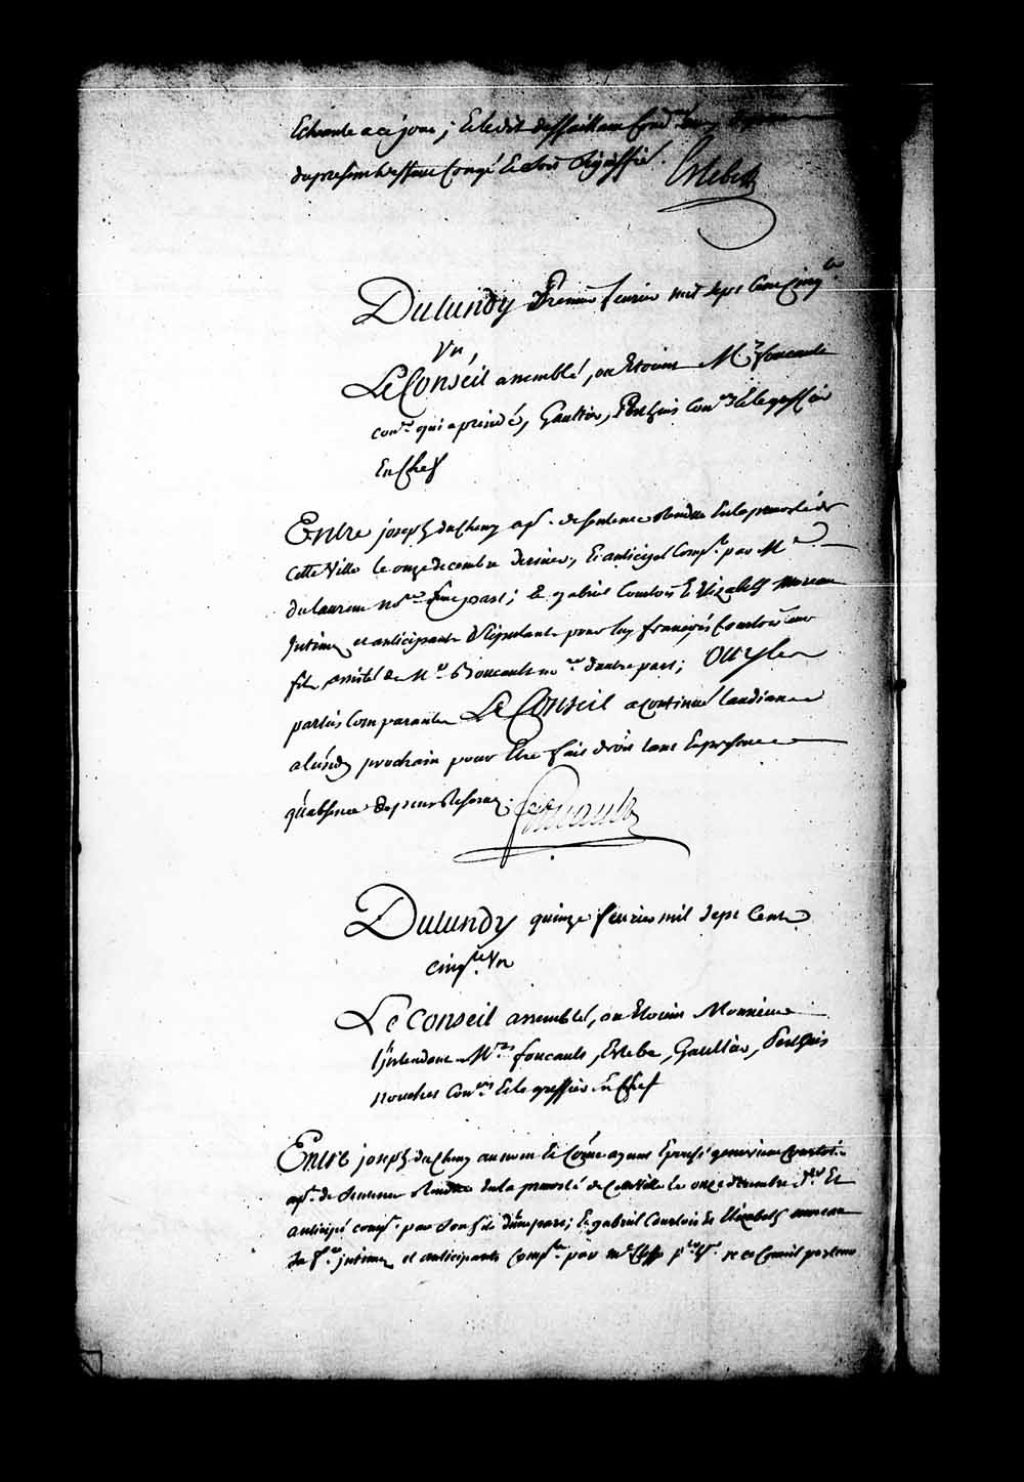 Echeante a ce jour; Et ledit deffaillant Cond.
du present deffaut Congé Et alors Signiffié.
Estebe
Du Lundy Premier fevrier mil sept Cent Cinq.te
Vn,
Le Conseil assemblé, ou Etoient M.rs foucault
con.er qui a presidé, Gaultier, Perthuis Con.ers Et le greffier
En Chef
Entre joseph duChesny ap.t de sentence Rendue En la prevosté de
Cette Ville le onze decembre dernier, Et anticipé Comp.t par M.e
dulaurent no.re d'une part; Et gabriel Courtois Et Elizabeth moreau
Intimez et anticipants Stipulants pour luy françois Courtois leur
fils, assisté de M.e Boucault no.re d'autre part; Ouy les
parties Comparantes Le Conseil a Continué l'audiance
a lundy prochain pour Etre fait droit tant En presence
qu'absence depens Reservez.
foucault
Du Lundy quinze fevrier mil Sept Cents
cinq.te Vn
Le Conseil assemblé, ou Etoient Monsieur
l'Intendant M.rs foucault, Estebe, Gaultier, Perthuis
nouchet Con.ers Et le greffier En Chef
Entre joseph duChesny au nom Et Co͞me ayant Epousé genevieve Courtois
ap.t de Sentence Rendue En la prevosté de Cette Ville le onze decembre d.er Et
anticipé comp.t par Son fils d'une part; Et gabriel Courtois Et Elizabeth moreau
Sa f.e intimez et anticipants Comp.ts par